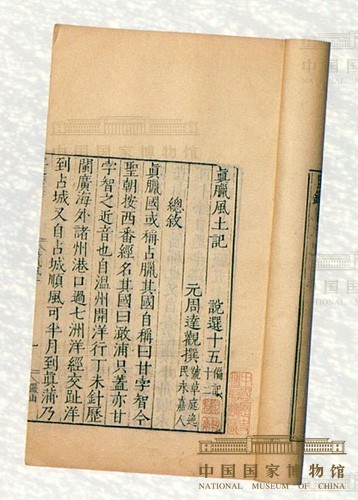 眞臘風土記
說選十五
元周達觀撰 號草庭逸民永嘉人
總敘
眞臘國或稱占臘其國自稱曰甘孛智今
聖朝按西番經名其國曰澉浦只蓋亦甘
孛智之近音也自温州開洋行丁未針歷
閩廣海外諸州港口過七洲洋經交趾洋
到占城又自占城順風可半月到眞蒲乃
中国国家博物馆
NATIONAL MUSEUM OF CHINA